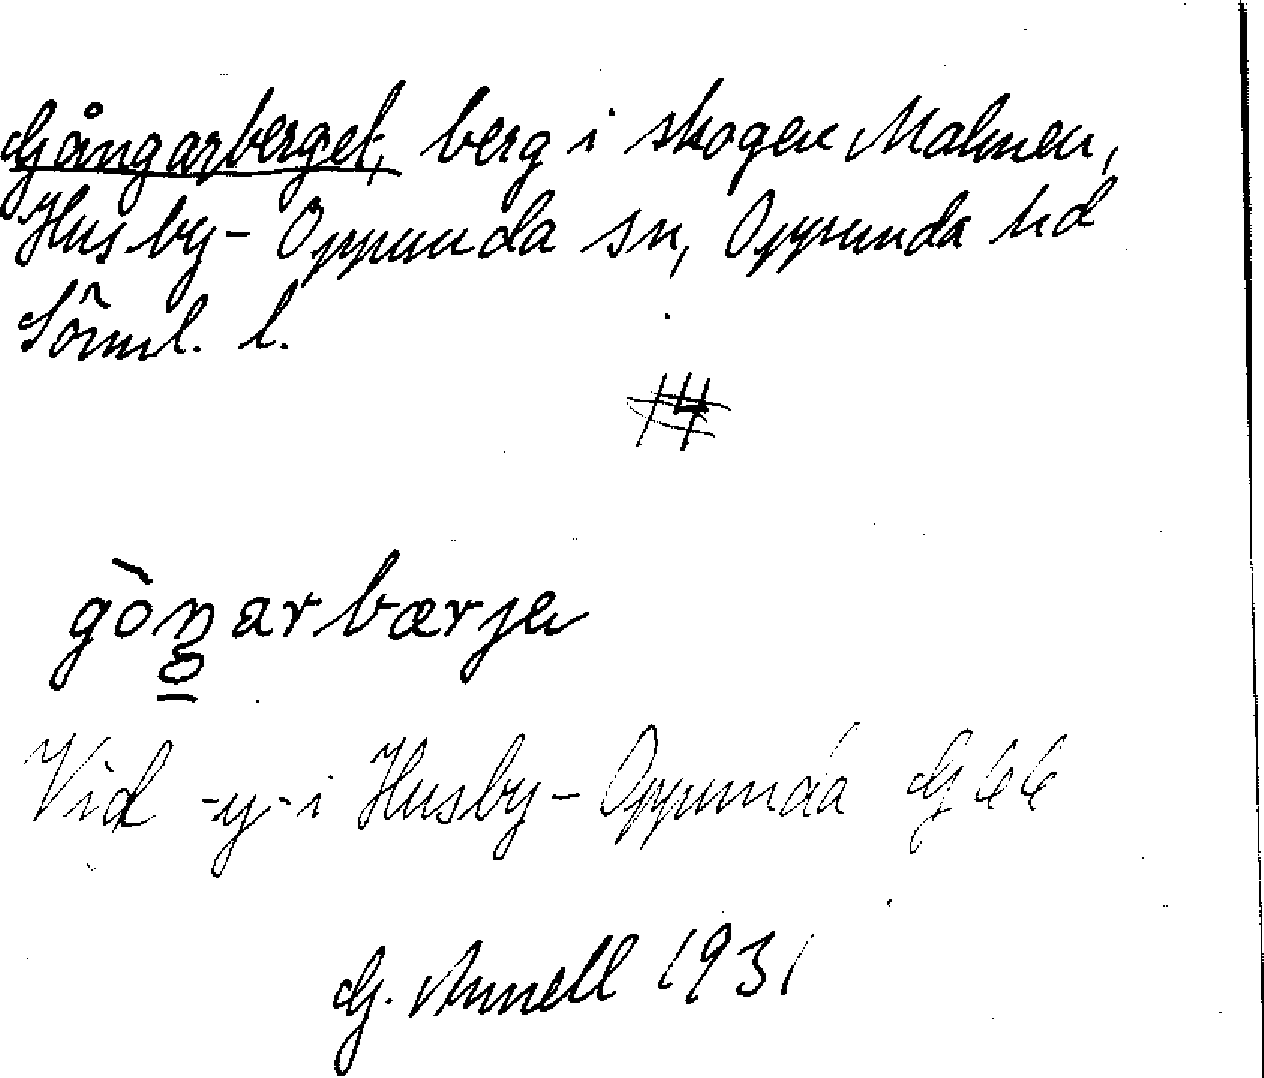 Gångarberget, berg i skogen Malmen,
Husby-Oppunda sn, Oppunda hd
Söml. l.
gòŋarbærjə
Vid -y- i Husby-Oppunda G 66
G. Annell 1931